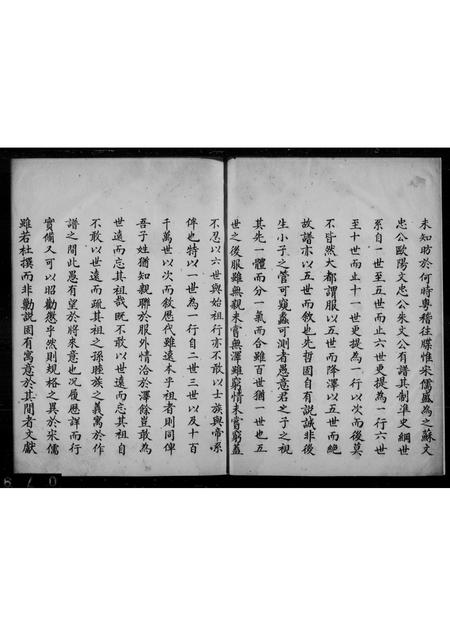 未知昉於何時粤稽往牒惟宋儒盛為之蘇文
忠公歐陽文忠公朱文公有譜其制準史綱世
系自一世至五世而止六世更提為一行六世
至十世而止十一世更提為一行以次而後莫
不皆然大都謂服以五世而降澤以五世而絶
故譜亦以五世而敘也先哲固自有説誠非後
生小子之管可窺蠡可測者愚意君之子之視
其先一體而分一氣而合雖百世猶一世也五
世之後服雖無親未嘗無澤雖窮情未嘗窮蓋
不忍以六世與始祖行亦不敢以士族與帝系
侔也特以一世為一行自二世三世以及十百
千萬世以次而敘歴代雖遠本乎祖者則同俾
吾子姓猶知親聯於服外情洽於澤餘豈敢為
世遠而忘其祖哉既不敢以世遠而忘其祖自
不敢以世遠而疏其祖之孫睦族之義寓於作
譜之間此愚有望於將來意也况履歴詳而行
實備又可以昭勸懲乎然則規格之異於宋儒
雖若杜撰而非勦説固有寓意於其間者文獻
810